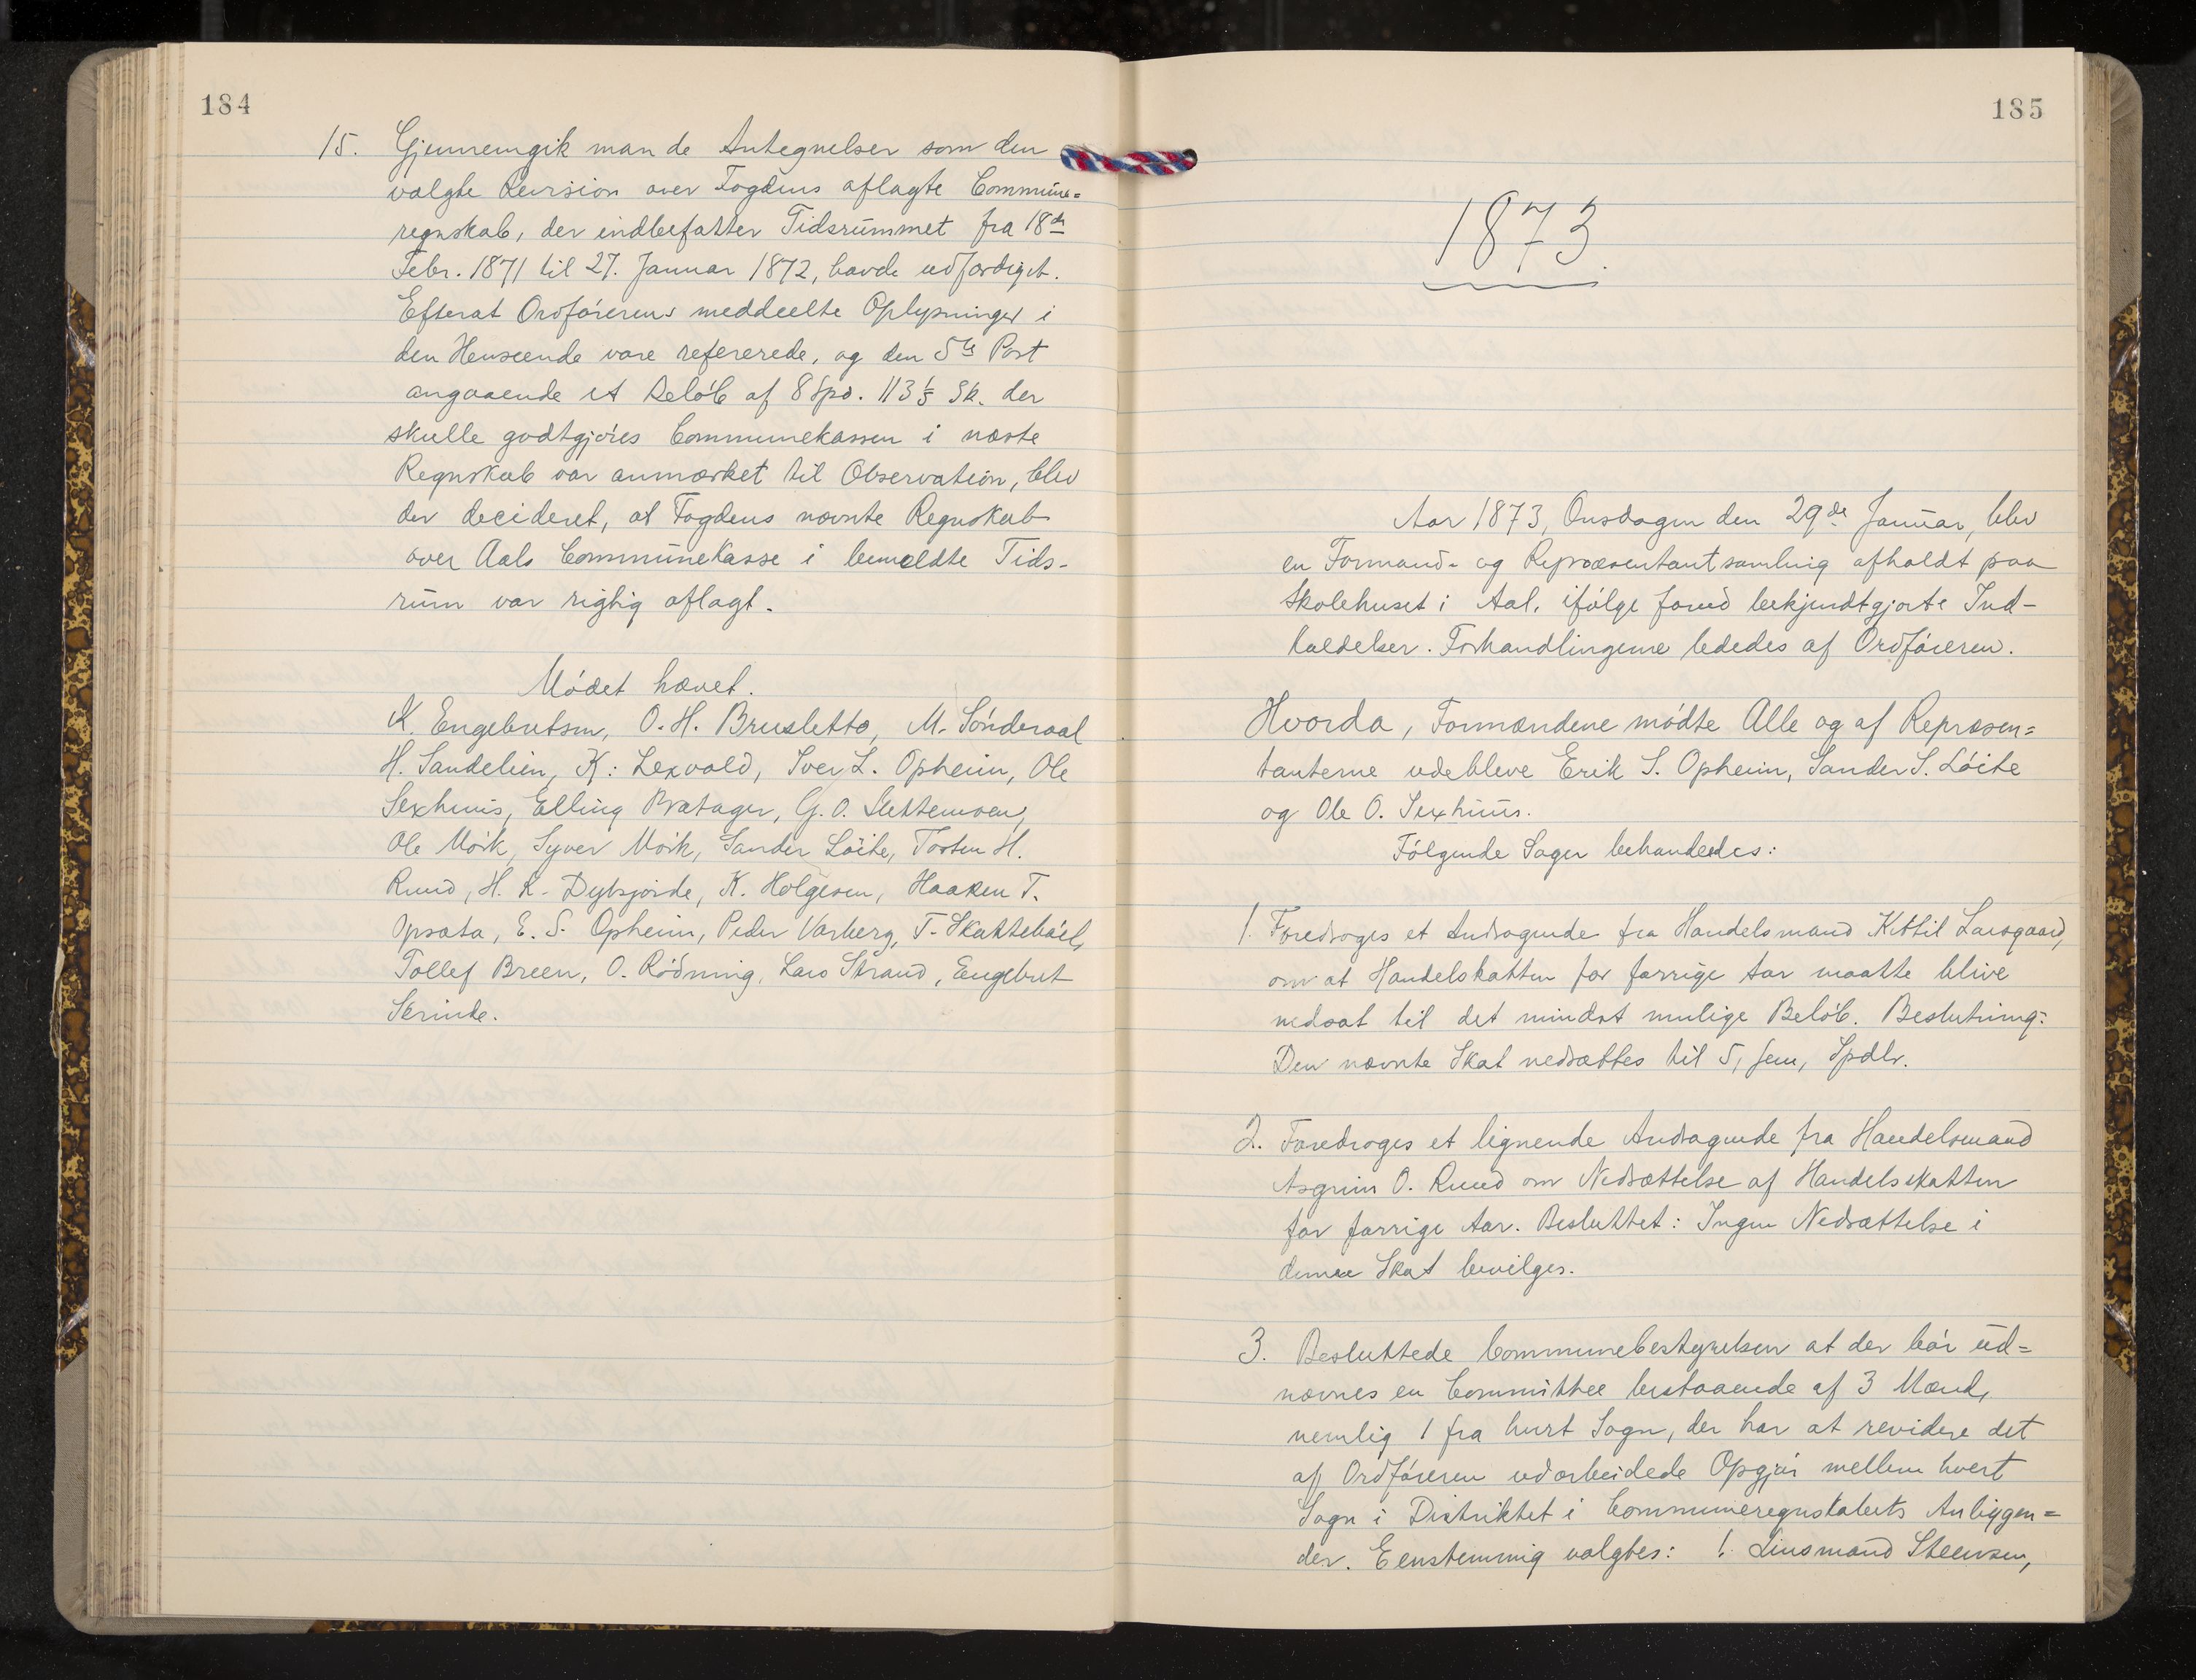 184
15. Gjennemgik man de Antegnelser som den
valgte Revision over Fogdens aflagte Commune=
regnskab, der indbefatter Tidsrummet fra 18de
Febr. 1871 til 27. Januar 1872, havde udfærdiget.
Efterat Ordførerens meddeelte Oplysninger i
den Henseende vare refererede, og den 5te Post
angaaende et Beløb af 8 Spd. 113 1/5 Sk. der
skulle godtgjøres Communekassen i næste
Regnskab var anmærket til Observation, blev
der decideret, at Fogdens nævnte Regnskab
over Aals Communekasse i bemeldte Tids-
rum var rigtig aflagt.
Mødet hævet.
K. Engebretsen, O. H. Brusletto, M. Sønderaal
H. Sandelien, K: Lexvold, Iver L. Opheim, Ole
Sexhuus, Elling Bratager, G. O. Slettemoen,
Ole Mørk, Syver Mørk, Sander Løite, Torsten H.
Ruud, H. K. Dybsjorde, K. Holgesen, Haaken T.
Opsata, E. S. Opheim, Peder Varberg, T. Skattebøel,
Tollef Breen, O. Rødning, Lars Strand, Engebret
Skrinde.
185
1873.
Aar 1873, Onsdagen den 29de Januar, blev
en Formand- og Repræsentantsamling afholdt paa
Skolehuset i Aal, ifølge forud bekjendtgjorte Ind-
kaldelser. Forhandlingerne lededes af Ordføreren.
Hvorda, Formændene mødte Alle og af Repræsen=
tanterne udebleve Erik S. Opheim, Sander S. Løite
og Ole O. Sexhuus.
Følgende Sager behandledes:
1. Foredroges et Andragende fra Handelsmand Kittil Larsgaard,
om at Handelskatten for forrige Aar maatte blive
nedsat til det mindst mulige Beløb. Beslutning:
Den nævnte Skat nedsættes til 5, fem, Spdlr.
2. Foredroges et lignende Andragende fra Handelsmand
Asgrim O. Ruud om Nedsættelse af Handelsskatten
for forrige Aar. Besluttet: Ingen Nedsættelse i
denne Skat bevilges.
3. Besluttede Communebestyrelsen at der bør ud=
nævnes en Committee bestaaende af 3 Mænd,
nemlig 1 fra hvert Sogn, der har at revidere det
af Ordføreren udarbeidede Opgjør mellem hvert
Sogn i Distriktet i Communeregnskabets Anliggen=
der. Eenstemmig valgtes: 1. Linsmand Steensen,